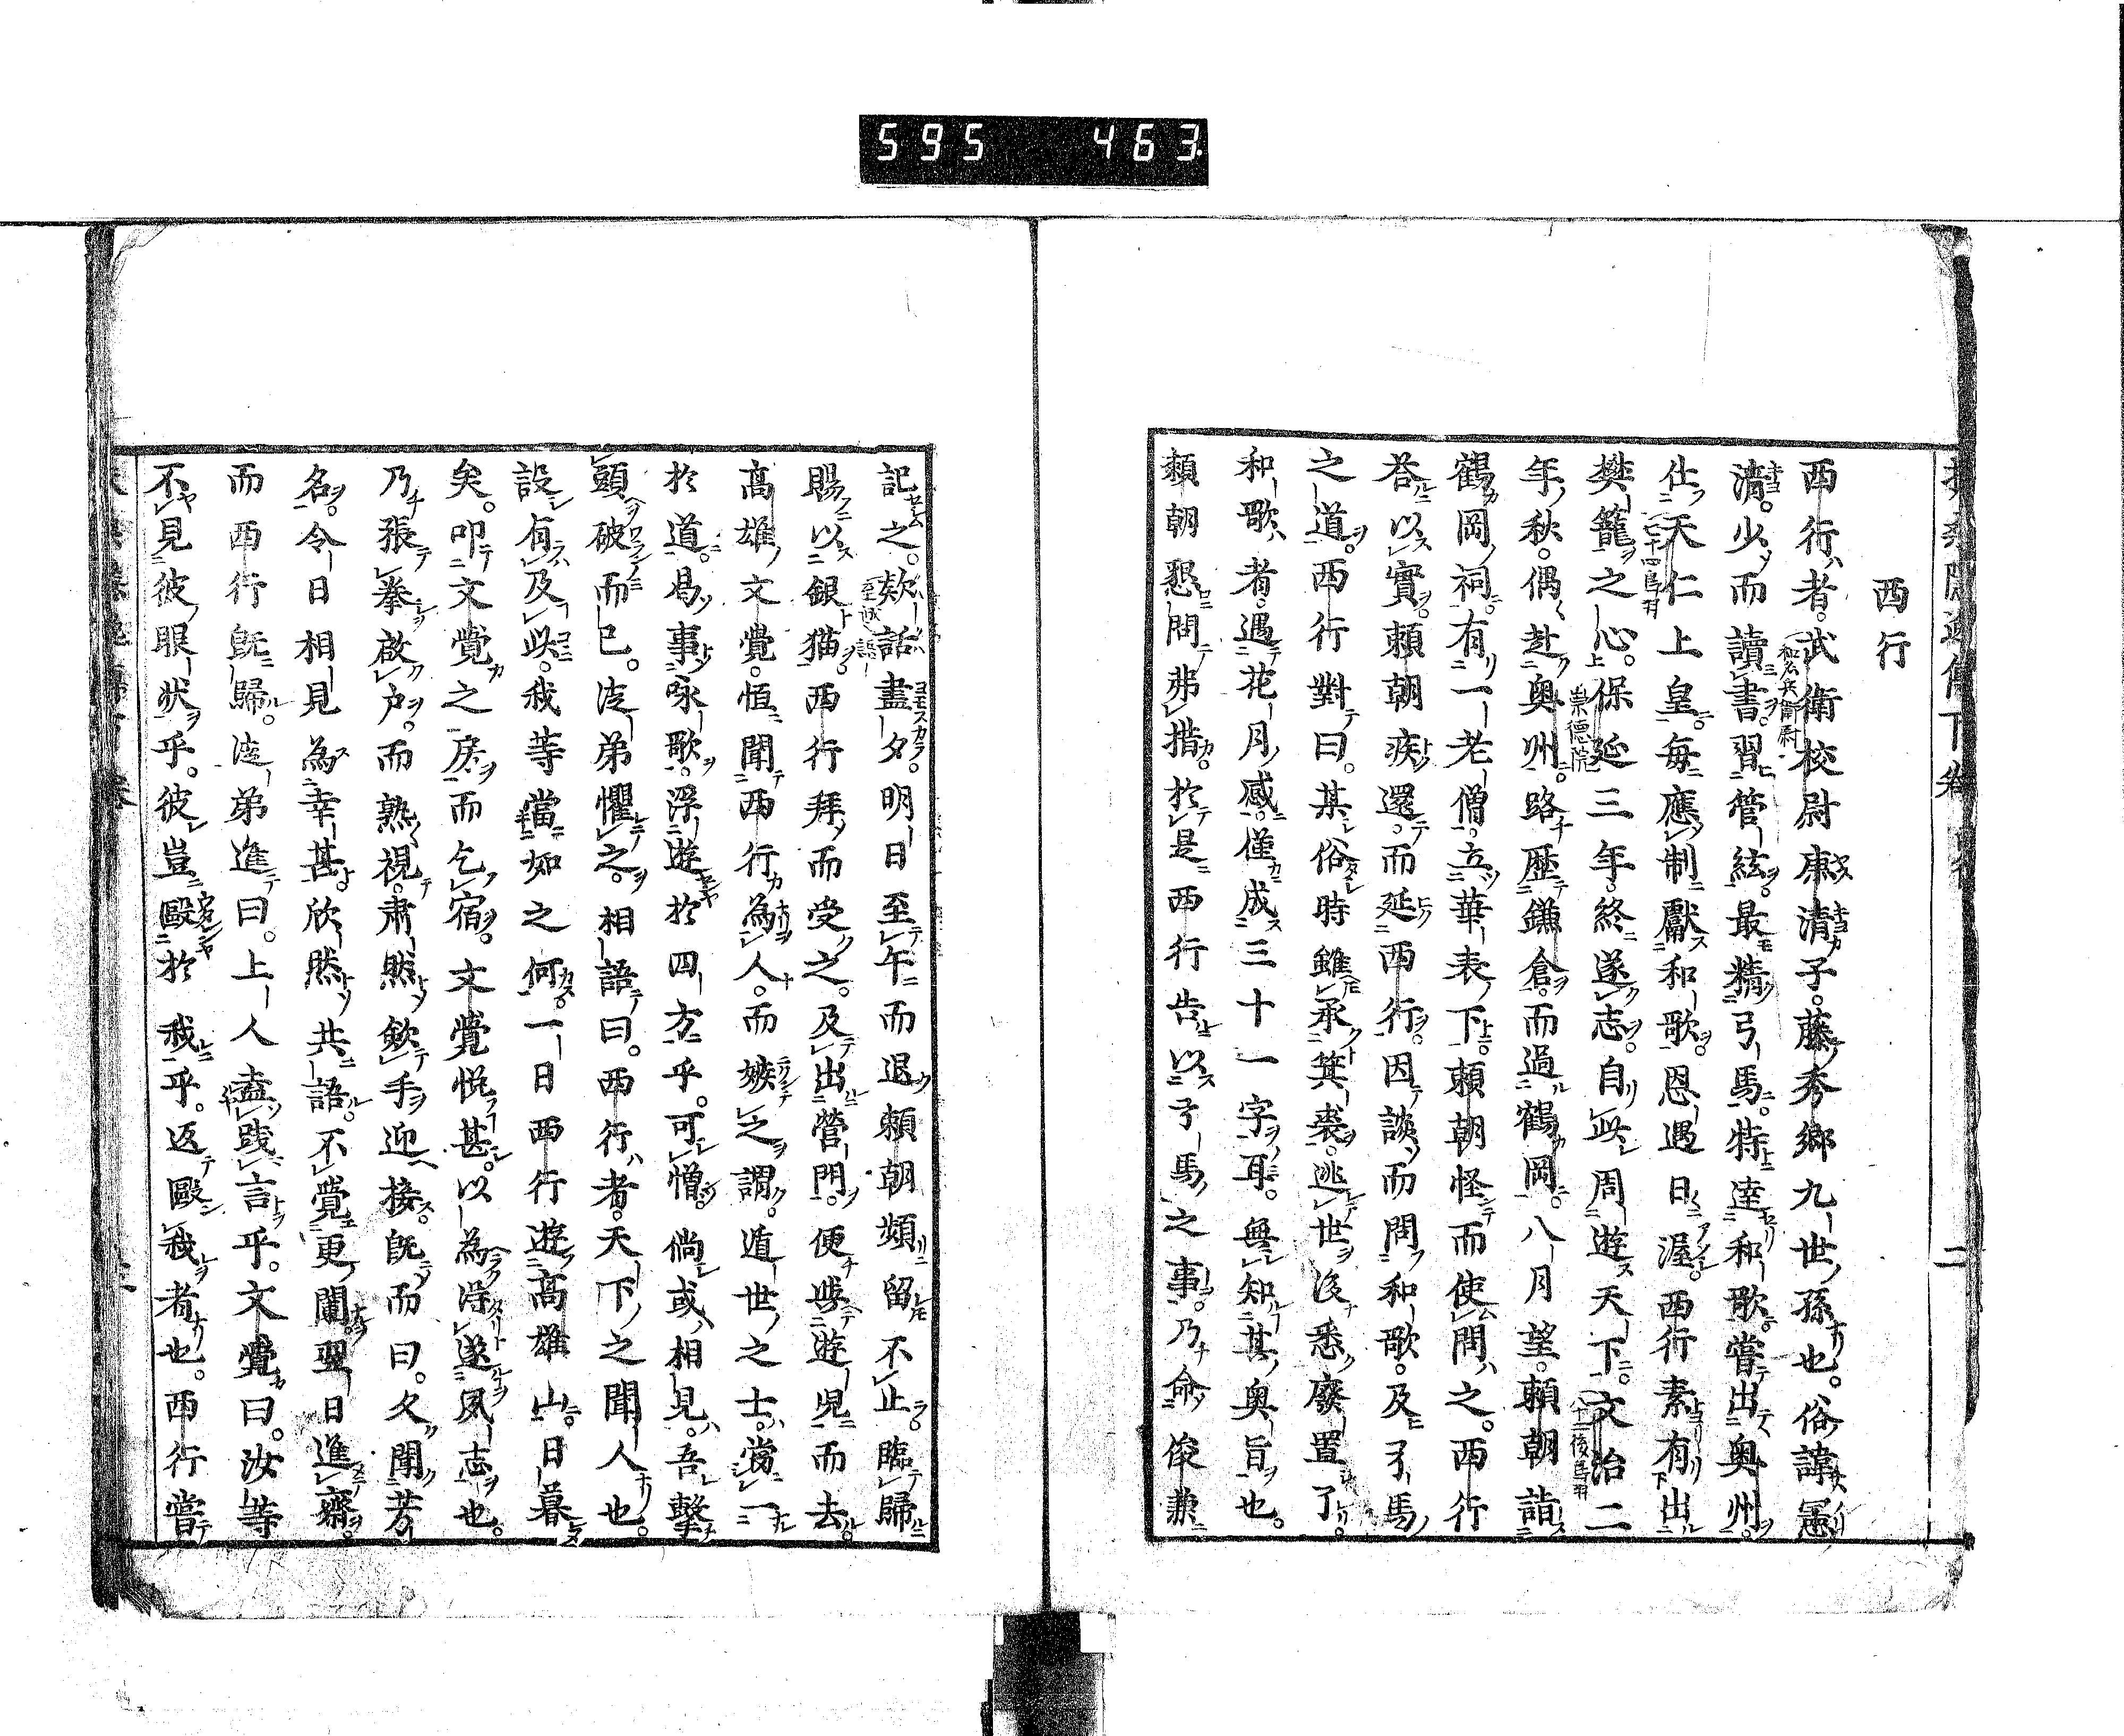 595 463
西行
西行者。武衛校尉康清子。藤秀郷九世孫也。俗諱憲
清。少而讀書。習管絃。最精弓馬。特達和歌。嘗出奥州。
仕天仁上皇。毎應制獻和歌。恩遇日渥。西行素有出
樊籠之心。保延三年。終遂志。自此周遊天下。文治二
年秋。偶赴奥州。路歷鎌倉。而過鶴岡。八月望。頼朝詣
鶴岡祠。有一老僧。立華表下。頼朝怪而使問之。西行
荅以實。頼朝疾還。而延西行。因談而問和歌。及弓馬
之道。西行對曰。某俗時雖承箕裘。逃世後悉廢置了。
和歌者。遇花月感。僅成三十一字耳。無知其奥旨也。
頼朝懇問弗措。於是西行告以弓馬之事。乃命俊兼
記之。欵話盡夕。明日至午而退頼朝頻留不止。臨歸
賜以銀猫。西行拜而受之。及出營門。便與遊兒而去。
高雄文覺。恒聞西行為人。而嫉之謂。遁世之士。當一
於道。曷事咏歌。浮遊於四方乎。可憎。倘或相見。吾擊
頭破而已。徒弟懼之。相語曰。西行者。天下之聞人也。
設有及此。我等當如之何。一日西行遊高雄山。日暮
矣。叩文覺之房而乞宿。文覺悦甚。以為得遂夙志也。
乃張拳啟户。而熟視。肅然歛手迎接。既而曰。久聞芳
名。令日相見為幸甚。欣然共語。不覺更闌。翌日進齋。
而西行既歸。徒弟進曰。上人盍践言乎。文覺曰。汝等
不見彼眼状乎。彼豈毆於我乎。返毆我者也。西行嘗